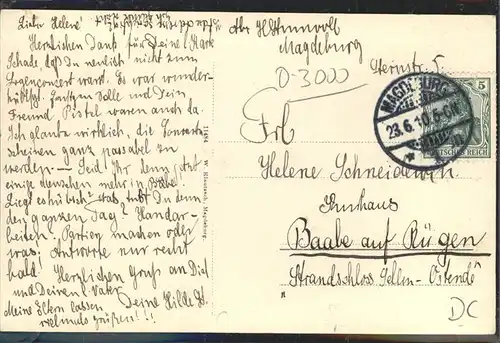 Liebe Helene!
Herzlichen Dank für Deine Karte
Schade, daß Du neulich nicht zum
konzert warst. Es war wunder-
hübsch. Dein
Freund Pistol waren auch da.
Ich glaube wirklich, die Concerte
scheinen ganz passabel zu
werden. Seid Ihr denn jetzt
einige Menschen mehr in Baabe?
Liegt es hübsch? Was tust Du denn
den ganzen Tag? Handar-
beiten? Partien machen oder
was. Antworte nur recht
bald! Herzlichen Gruß an Dich
und Deinen l. Vater
Deine Hilde H.
Meine Eltern lassen
vielmals grüßen!!!
Abs. H.
Magdeburg
Sternstr. 5.
D-3000
MAGDEBURG
23.6.10. 5-6N
5
DEUTSCHES REICH
Frl
Helene Schneidewin
Kurhaus
Baabe auf Rügen
Strandschloss Sellin - Ostende
W. Klautzsch, Magdeburg.
DC